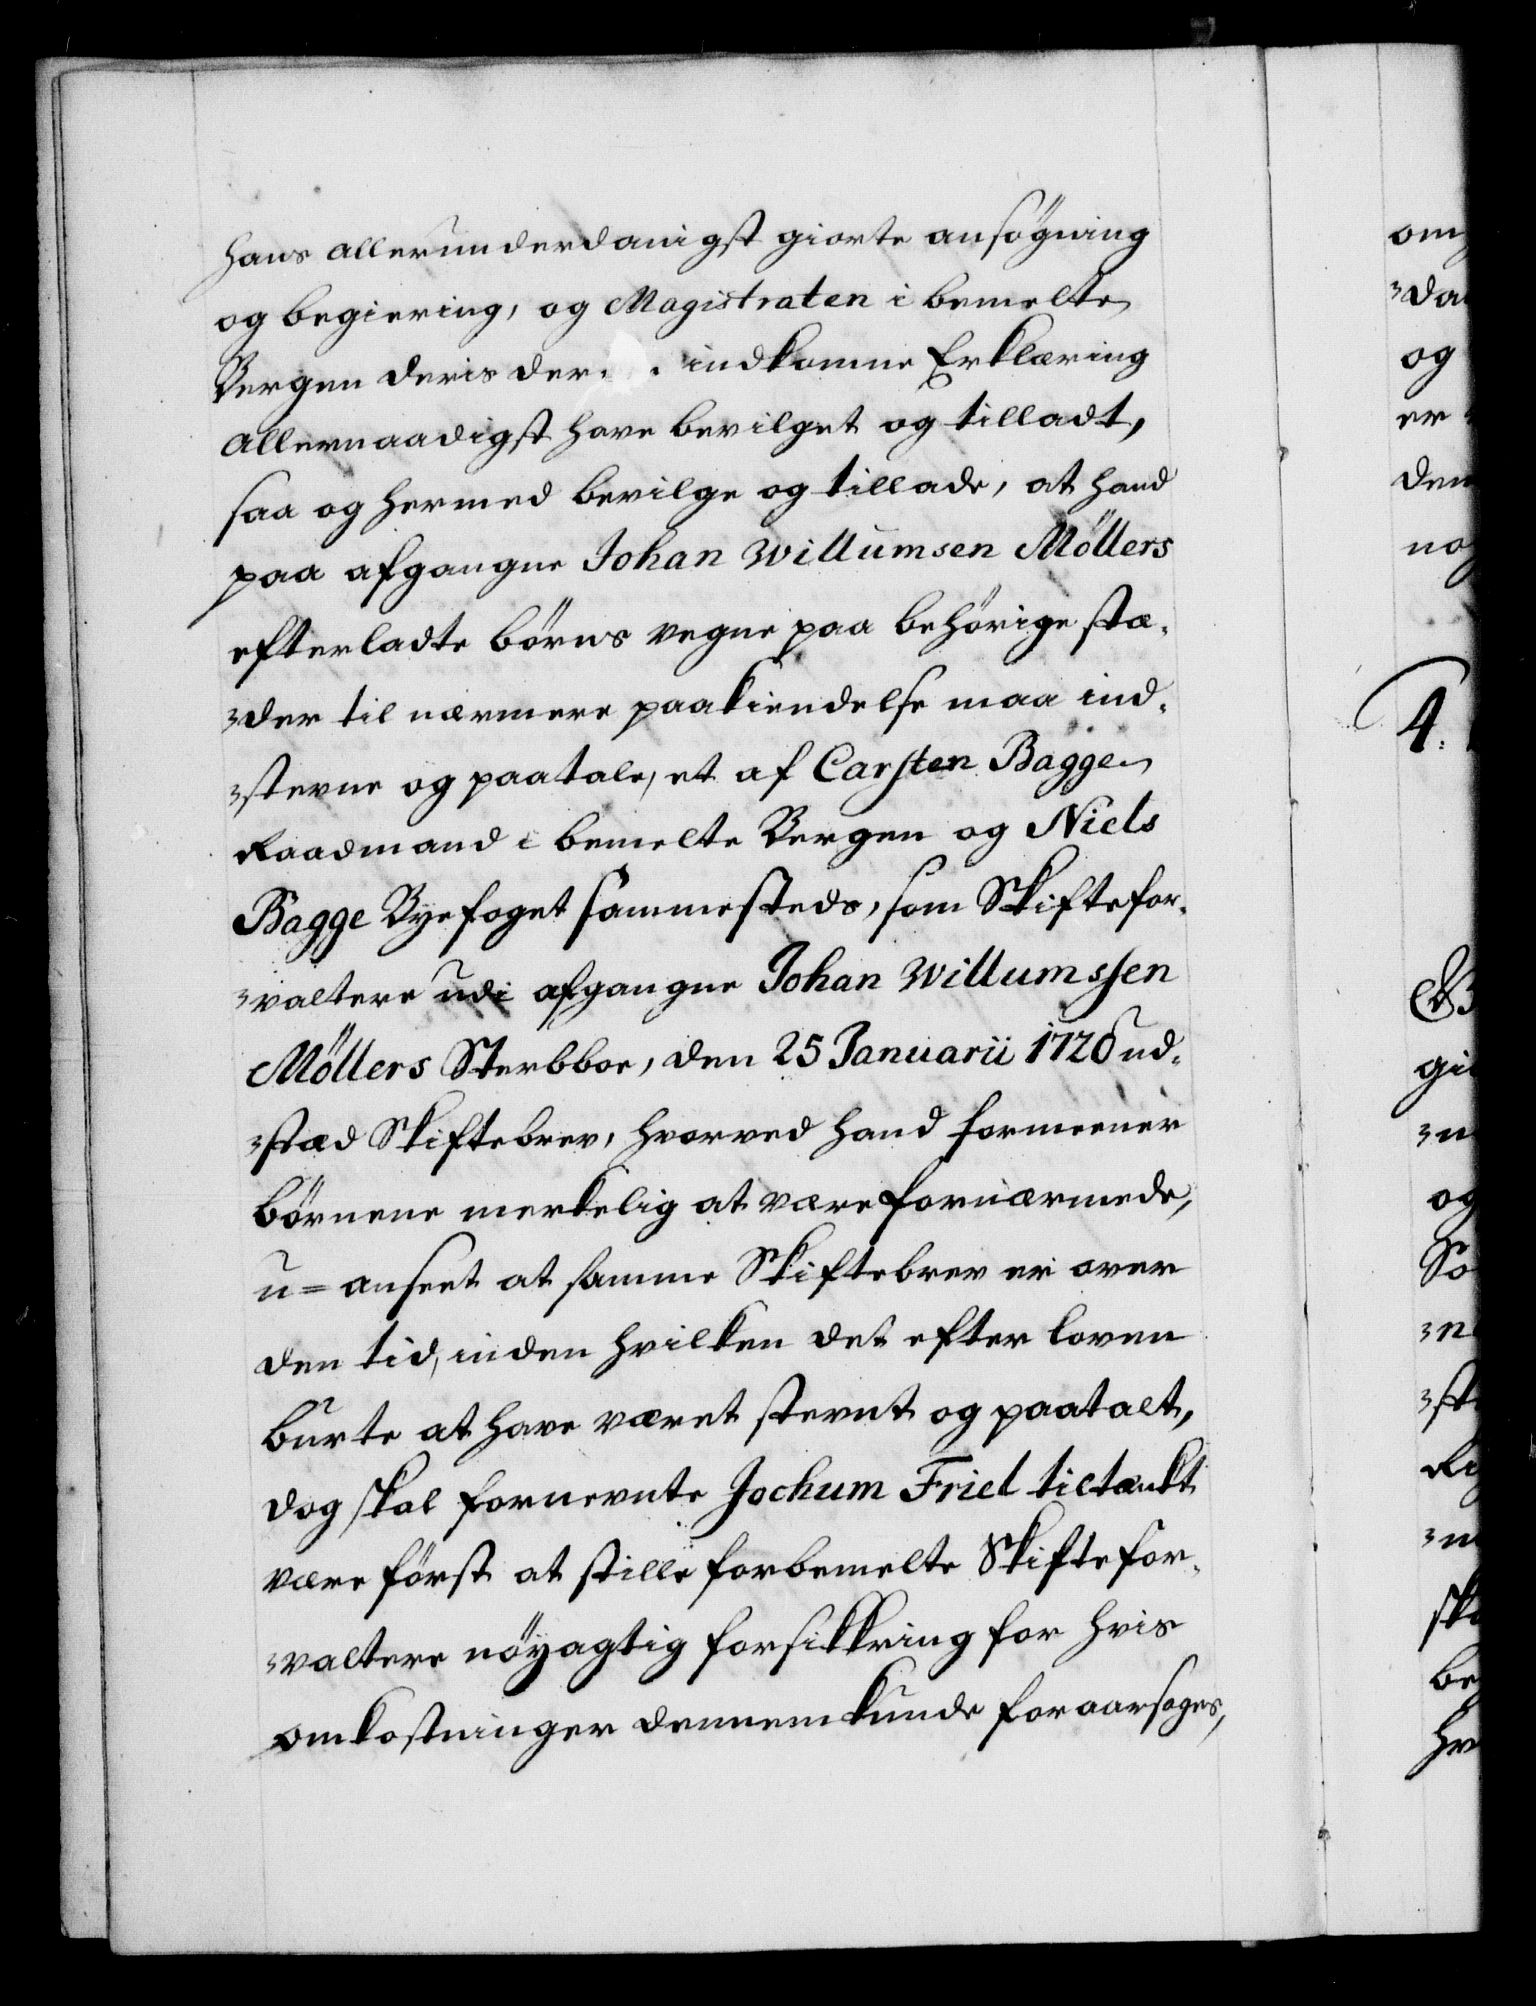 hans allerunderdanigst giorte ansögning
og begiering, og Magistraten i bemelte
Bergen deris der indkomne Erklæring
allernaadigst have bevilget og tilladt,
saa og hermed bevilge og tillade, at hand
paa afgangne Johan Willumsen Möllers
efterladte börns vegne paa behörige stæ-
der til nærmere paakiendelse maa ind-
stevne og paatale, et af Carsten Bagge
Raadmand i bemelte Bergen og Niels
Bagge Byefoget sammesteds, som Skiftefor-
valtere udi afgangne Johan Willumssen
Möllers Sterbboe, den 25 Januarii 1726 ud-
stæd Skiftebrev, hvorved hand formeener
börnene merkelig at være fornærmede,
u=anseet at samme Skiftebrev er over
den tid, inden hvilken det efter loven
burte at have været stevnt og paatalt,
dog skal fornevnte Jochum Friel tiltænkt
være först at stille forbemelte Skiftefor-
valtere nöyagtig forsikkring for hvis
omkostninger dennem kunde foraarsages,
om
da
og
er
den
no
4.
gi
n
og
So
n
st
sk
be
hv